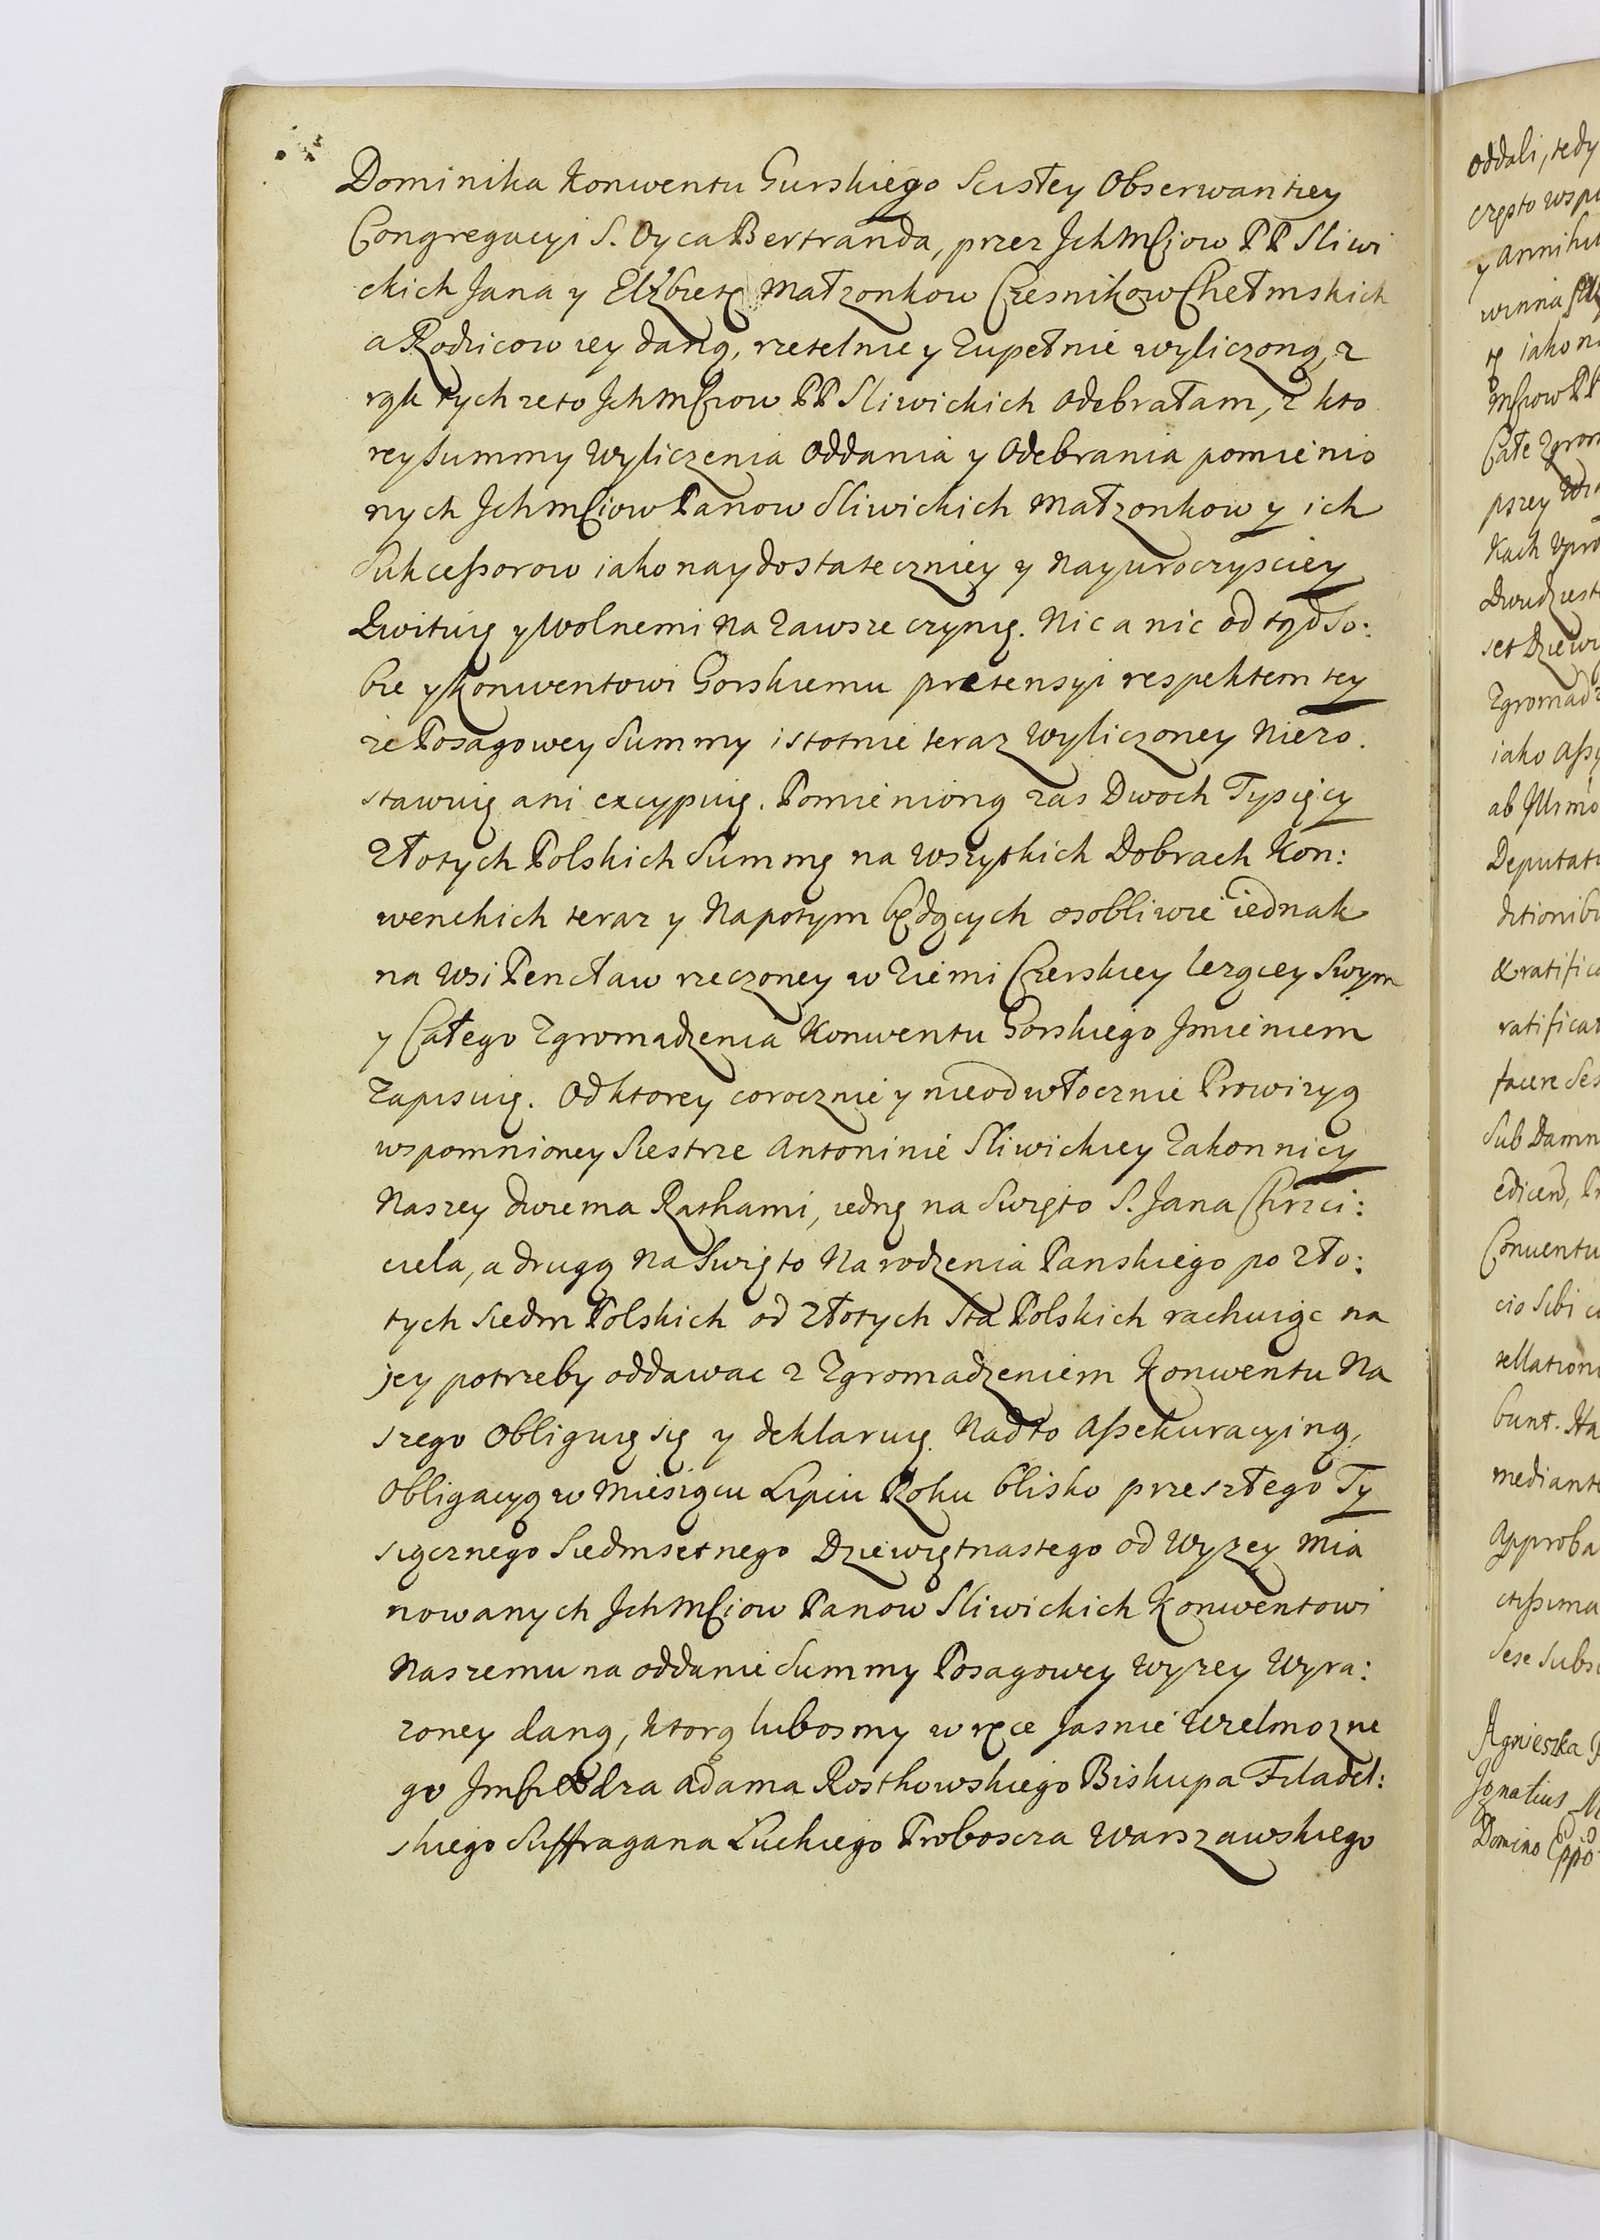 Dominika Konwentu Gurskiego Scisłey Obserwantiey
Congregacyi S. Oyca Bertranda, przez Ichmćiow PP Sliwi
ckich Jana y Elżbietę Małzonkow Czesnikow Chełmskich
a Rodzicow iey daną, rzetelnie y zupełnie wyliczoną, z
rąk tychzeto Ichmćiow PP Sliwickich odebrałam, z kto
rey Summy wyliczenia oddania y odebrania pomienio
nych Ichmćiow Panow Sliwickich Małzonkow y ich
Sukcessorow iako naydostateczniey y nayuroczysciey
Kwituię y wolnemi na zawsze czynię. Nic a nic od tąd so:
bie y Konwentowi Gorskiemu prætensyi respektem tey
ze Posagowey Summy istotnie teraz wyliczoney niezo.
stawuię ani excypuię. Pomienioną zas Dwoch Tysięcy
Złotych Polskich Summę na wszystkich Dobrach Kon:
wenckich teraz y napotym będących osobliwie iednak
na wsi Pencław rzeczoney w Ziemi Czerskiey lezącey swym
y Całego Zgromadzenia Konwentu Gorskiego Imieniem
zapisuię. Od ktorey corocznie y nieodwłocznie Prowizyą
wspomnioney Siestrze Antoninie Sliwickiey Zakonnicy
Naszey dwiema Ratkami, iedną na Swięto S. Jana Chrzci:
ciela, a drugą na Swięto Narodzenia Panskiego po zło:
tych siedm Polskich od złotych sta Polskich rachuiąc na
jey potrzeby oddawac z Zgromadzeniem Konwentu Na
szego obliguię się y deklaruię. Nadto Assekuracyiną,
Obligacyą w Miesiącu Lipcu Roku blisko przeszłego Ty
siącznego Siedmsetnego Dziewiętnastego od wyzey mia
nowanych Ichmćiow Panow Sliwickich Konwentowi
Naszemu na oddanie Summy Posagowey wyzey wyra:
zoney daną, ktorą lubosmy w ręce Jasnie Wielmozne
go Imći Xdza Adama Rostkowskiego Biskupa Filadel:
skiego Suffragana Łuckiego Proboscza Warszawskiego
oddali, tedy
często wsp
y annihi
winna
tę iako n
Mćiow PP
Całe Zgrom
pszey
Kach
Dwudziest
set Dziewi
Zgromadz
iako Assy
ab Illrmo
Deputat
ditionib
& ratifica
ratificat
facere ses
sub Damn
edicen, Pr
Conventu
cio sibi
tellation
bunt. Ha
mediante
Approba
ctissima
sese subs
Agnieszka
Ignatius
Domino Eppo